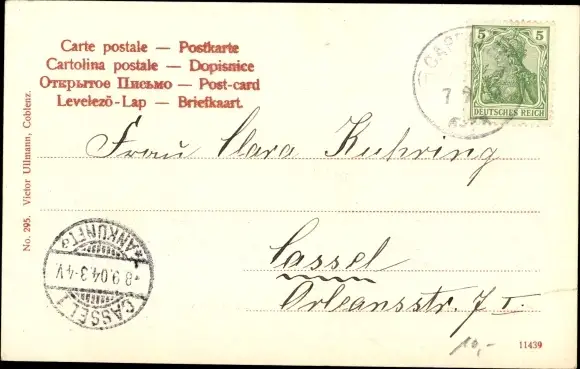 Carte postale — Postkarte
Cartolina postale — Dopisnice
Открытое Письмо — Post-card
Levelező-Lap — Briefkaart.
5 5
DEUTSCHES REICH
7 9
Frau Clara Kuhring
Cassel
Orleansstr. 7 I.
CASSEL 1
8.9.04.3-4V
ANKUNFT
No. 295. Victor Ullmann, Coblenz.
10,-
11439